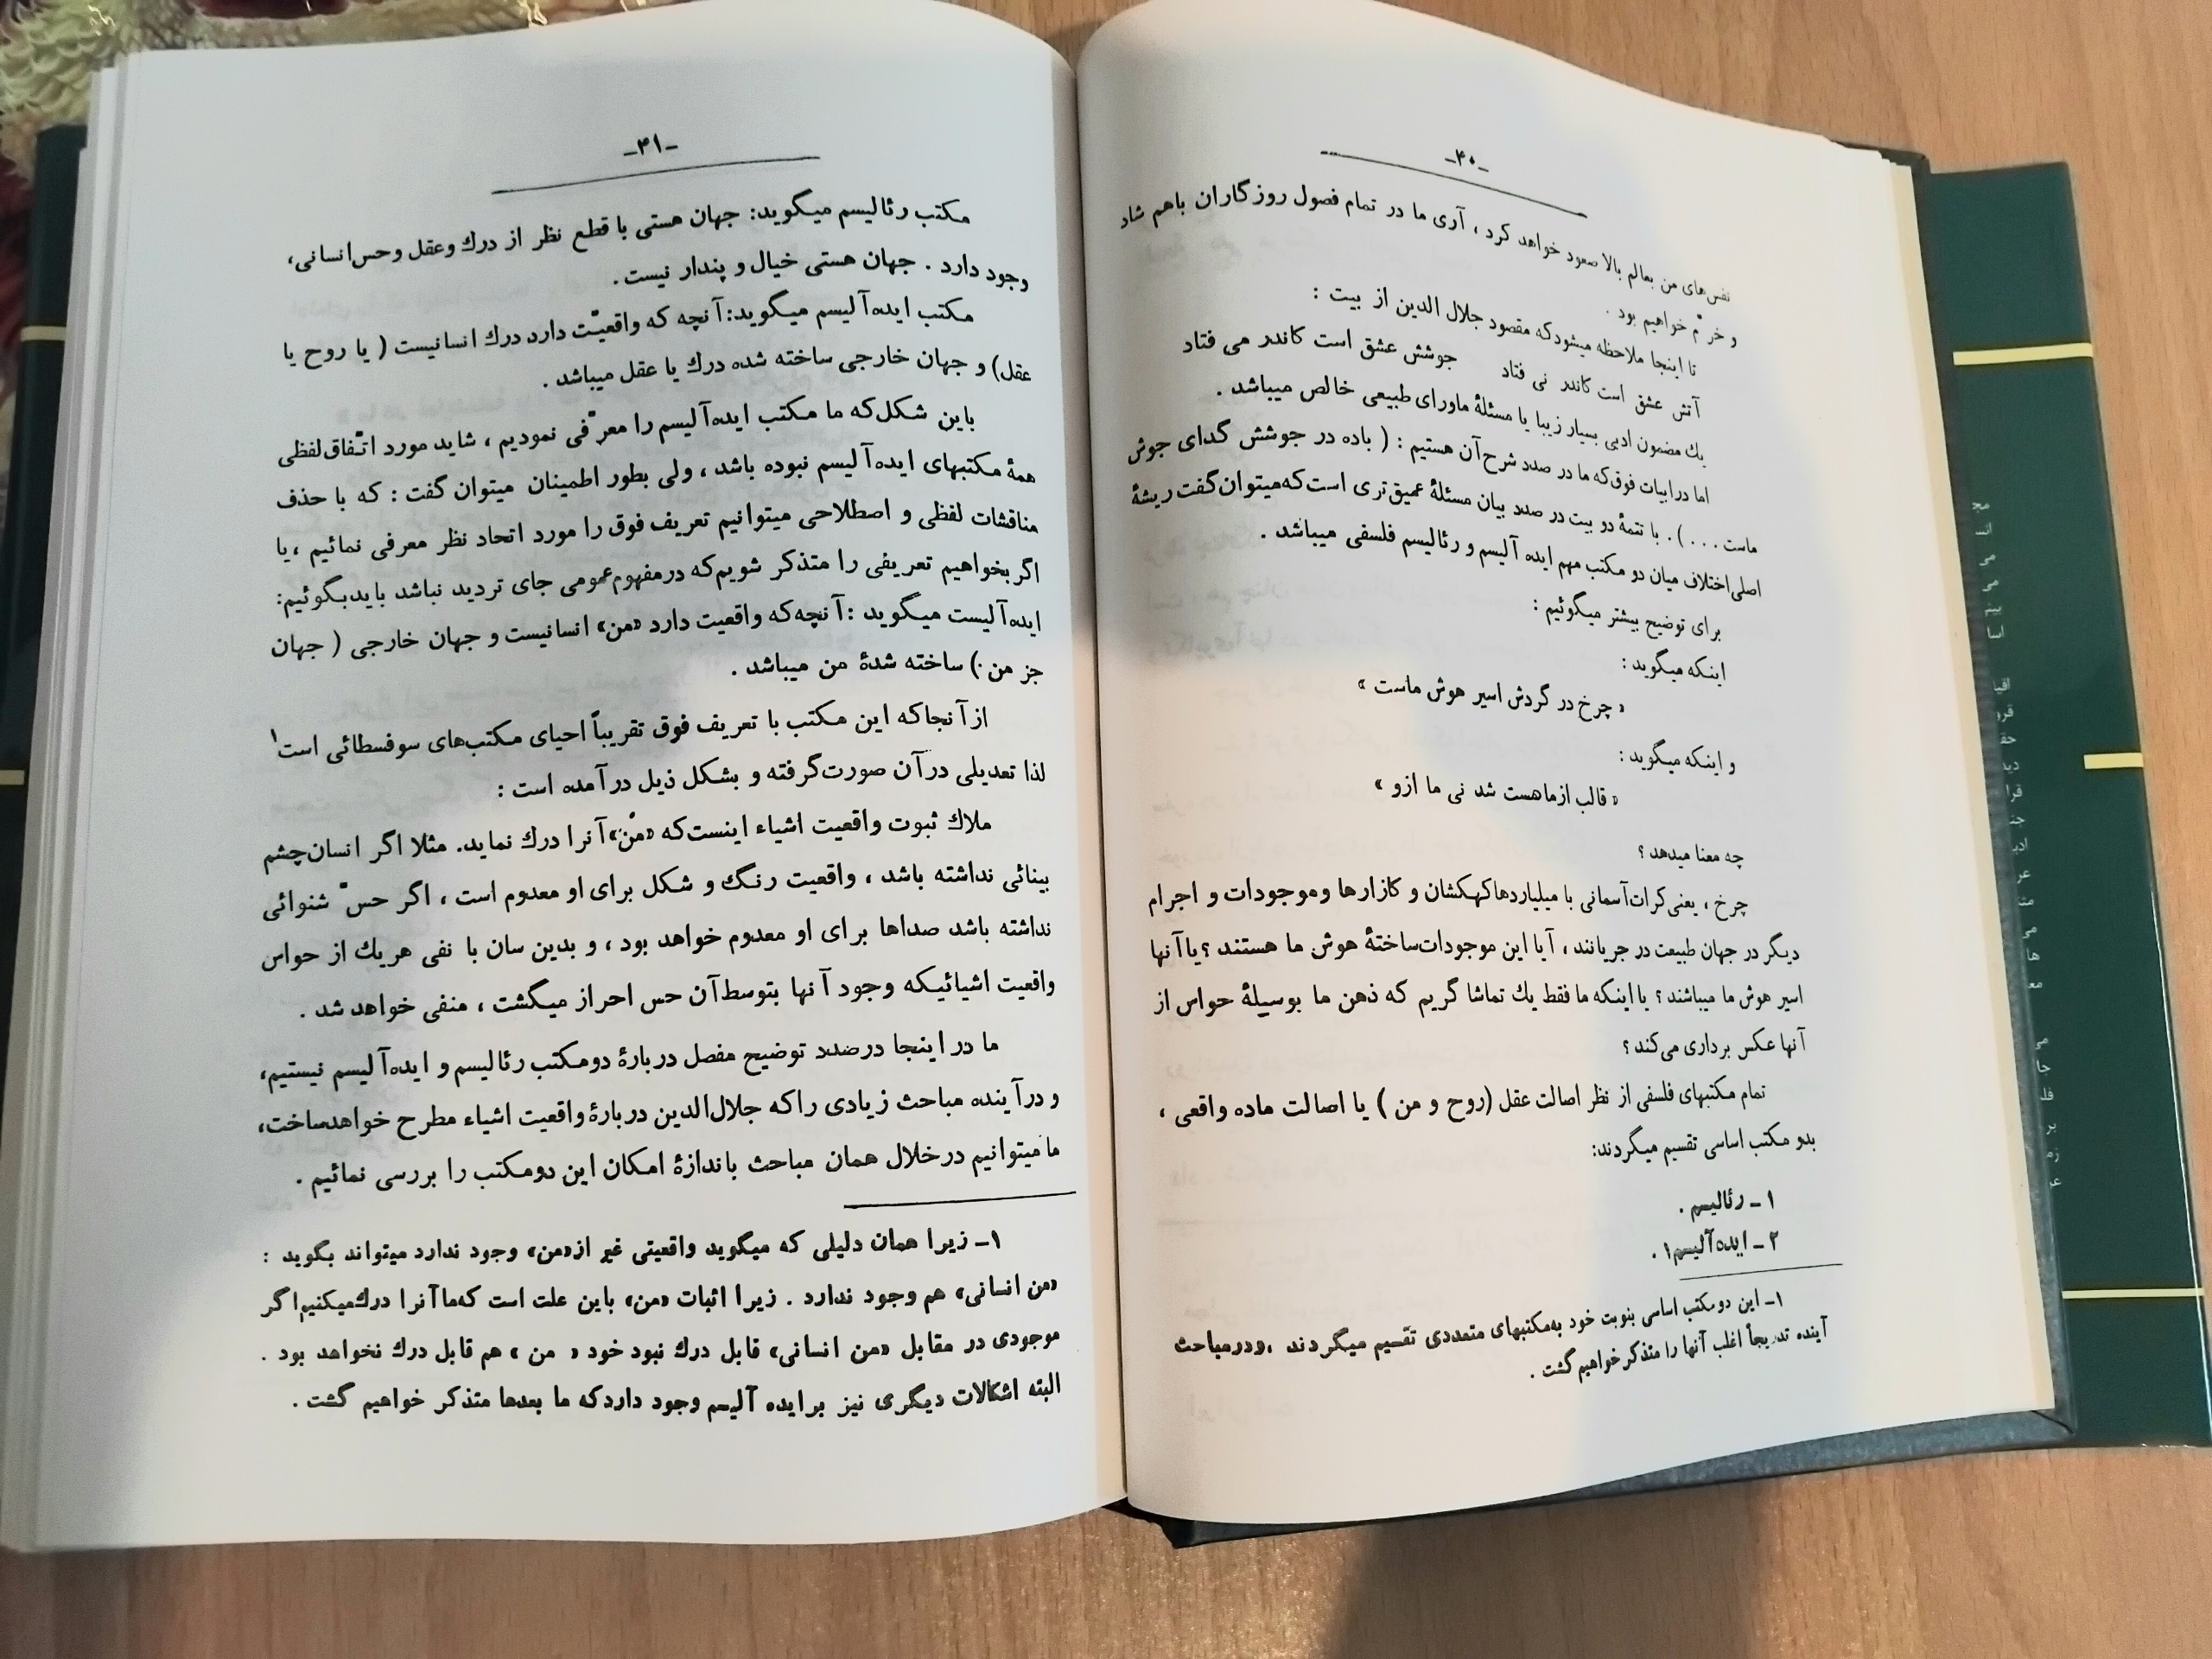 -۴۰-
نفس‌های من بعالم بالا صعود خواهد کرد ، آری ما در تمام فصول روزگاران باهم شاد
و خرّم خواهیم بود .
تا اینجا ملاحظه میشود که مقصود جلال الدین از بیت :
آتش عشق است کاندر نی فتاد جوشش عشق است کاندر می فتاد
یك مضمون ادبی بسیار زیبا یا مسئلهٔ ماورای طبیعی خالص میباشد .
اما در ابیات فوق که ما در صدد شرح آن هستیم : ( باده در جوشش گدای جوش
ماست . . . ) . با تتمهٔ دو بیت در صدد بیان مسئلهٔ عمیق‌تری است که میتوان گفت ریشهٔ
اصلی اختلاف میان دو مکتب مهم ایده آلیسم و رئالیسم فلسفی میباشد .
برای توضیح بیشتر میگوئیم :
اینکه میگوید :
« چرخ در گردش اسیر هوش ماست »
و اینکه میگوید :
« قالب ازما هست شد نی ما ازو »
چه معنا میدهد ؟
چرخ ، یعنی کرات آسمانی با میلیاردها کهکشان و کازارها و موجودات و اجرام
دیگر در جهان طبیعت در جریانند ، آیا این موجودات ساختهٔ هوش ما هستند ؟ یا آنها
اسیر هوش ما میباشند ؟ یا اینکه ما فقط یك تماشا گریم که ذهن ما بوسیلهٔ حواس از
آنها عکس برداری می‌کند ؟
تمام مکتبهای فلسفی از نظر اصالت عقل (روح و من ) یا اصالت ماده واقعی ،
بدو مکتب اساسی تقسیم میگردند:
۱ – رئالیسم .
۲ – ایده‌آلیسم۱ .
۱– این دو مکتب اساسی بنوبت خود به‌مکتبهای متعددی تقسیم میگردند ،ودرمباحث
آینده تدریجاً اغلب آنها را متذکر خواهیم گشت .
-۴۱-
مکتب رئالیسم میگوید: جهان هستی با قطع نظر از درك وعقل وحس انسانی،
وجود دارد . جهان هستی خیال و پندار نیست .
مکتب ایده‌آلیسم میگوید: آنچه که واقعیّت دارد درك انسانیست ( یا روح یا
عقل) و جهان خارجی ساخته شده درك یا عقل میباشد .
باین شکل که ما مکتب ایده‌آلیسم را معرّفی نمودیم ، شاید مورد اتّفاق لفظی
همهٔ مکتبهای ایده‌آلیسم نبوده باشد ، ولی بطور اطمینان میتوان گفت : که با حذف
مناقشات لفظی و اصطلاحی میتوانیم تعریف فوق را مورد اتحاد نظر معرفی نمائیم ، یا
اگر بخواهیم تعریفی را متذکر شویم که درمفهوم عمومی جای تردید نباشد باید بگوئیم:
ایده‌آلیست میگوید : آنچه که واقعیت دارد «من» انسانیست و جهان خارجی ( جهان
جز من ) ساخته شدهٔ من میباشد .
از آنجا که این مکتب با تعریف فوق تقریباً احیای مکتب‌های سوفسطائی است۱
لذا تعدیلی در آن صورت گرفته و بشکل ذیل در آمده است :
ملاك ثبوت واقعیت اشیاء اینست که «من» آنرا درك نماید. مثلا اگر انسان چشم
بینائی نداشته باشد ، واقعیت رنگ و شکل برای او معدوم است ، اگر حسّ شنوائی
نداشته باشد صداها برای او معدوم خواهد بود ، و بدین سان با نفی هریك از حواس
واقعیت اشیائیکه وجود آنها بتوسط آن حس احراز میگشت ، منفی خواهد شد .
ما در اینجا درصدد توضیح مفصل دربارهٔ دومکتب رئالیسم و ایده‌آلیسم نیستیم،
و در آینده مباحث زیادی را که جلال‌الدین دربارهٔ واقعیت اشیاء مطرح خواهدساخت،
ما میتوانیم درخلال همان مباحث باندازهٔ امکان این دومکتب را بررسی نمائیم .
۱– زیرا همان دلیلی که میگوید واقعیتی غیر از«من» وجود ندارد میتواند بگوید :
«من انسانی» هم وجود ندارد . زیرا اثبات «من» باین علت است که‌ما آنرا درك‌میکنیم اگر
موجودی در مقابل «من انسانی» قابل درك نبود خود « من » هم قابل درك نخواهد بود .
البته اشکالات دیگری نیز بر ایده آلیسم وجود دارد که ما بعدها متذکر خواهیم گشت .